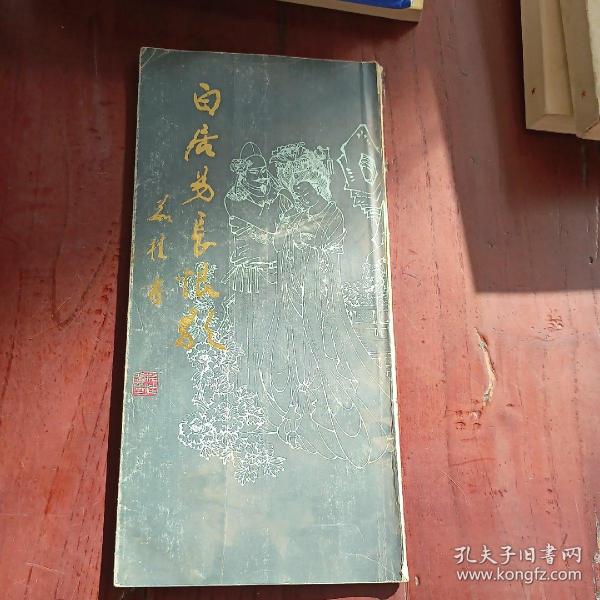 白居易长恨歌
孔夫子旧書网
www.kongfz.com